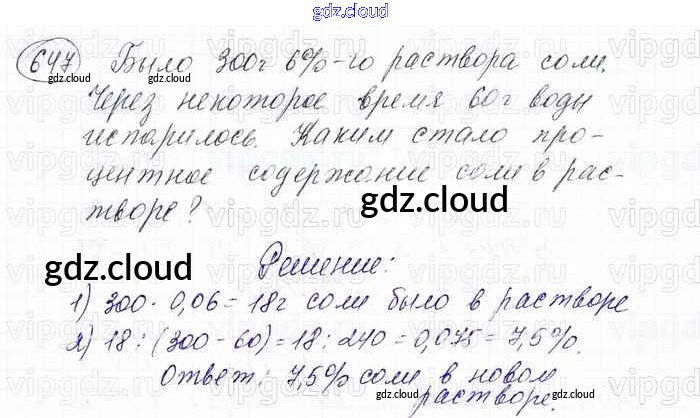 gdz.cloud
647 Было 300г 6%-го раствора соли.
Через некоторое время 60г воды
испарилось. Каким стало про-
центное содержание соли в рас-
творе?
Решение:
1) 300 · 0,06 = 18г соли было в растворе
2) 18 : (300 - 60) = 18 : 240 = 0,075 = 7,5%.
Ответ: 7,5% соли в новом
растворе.
gdz.cloud
gdz.cloud
gdz.cloud
gdz.cloud
gdz.cloud
gdz.cloud